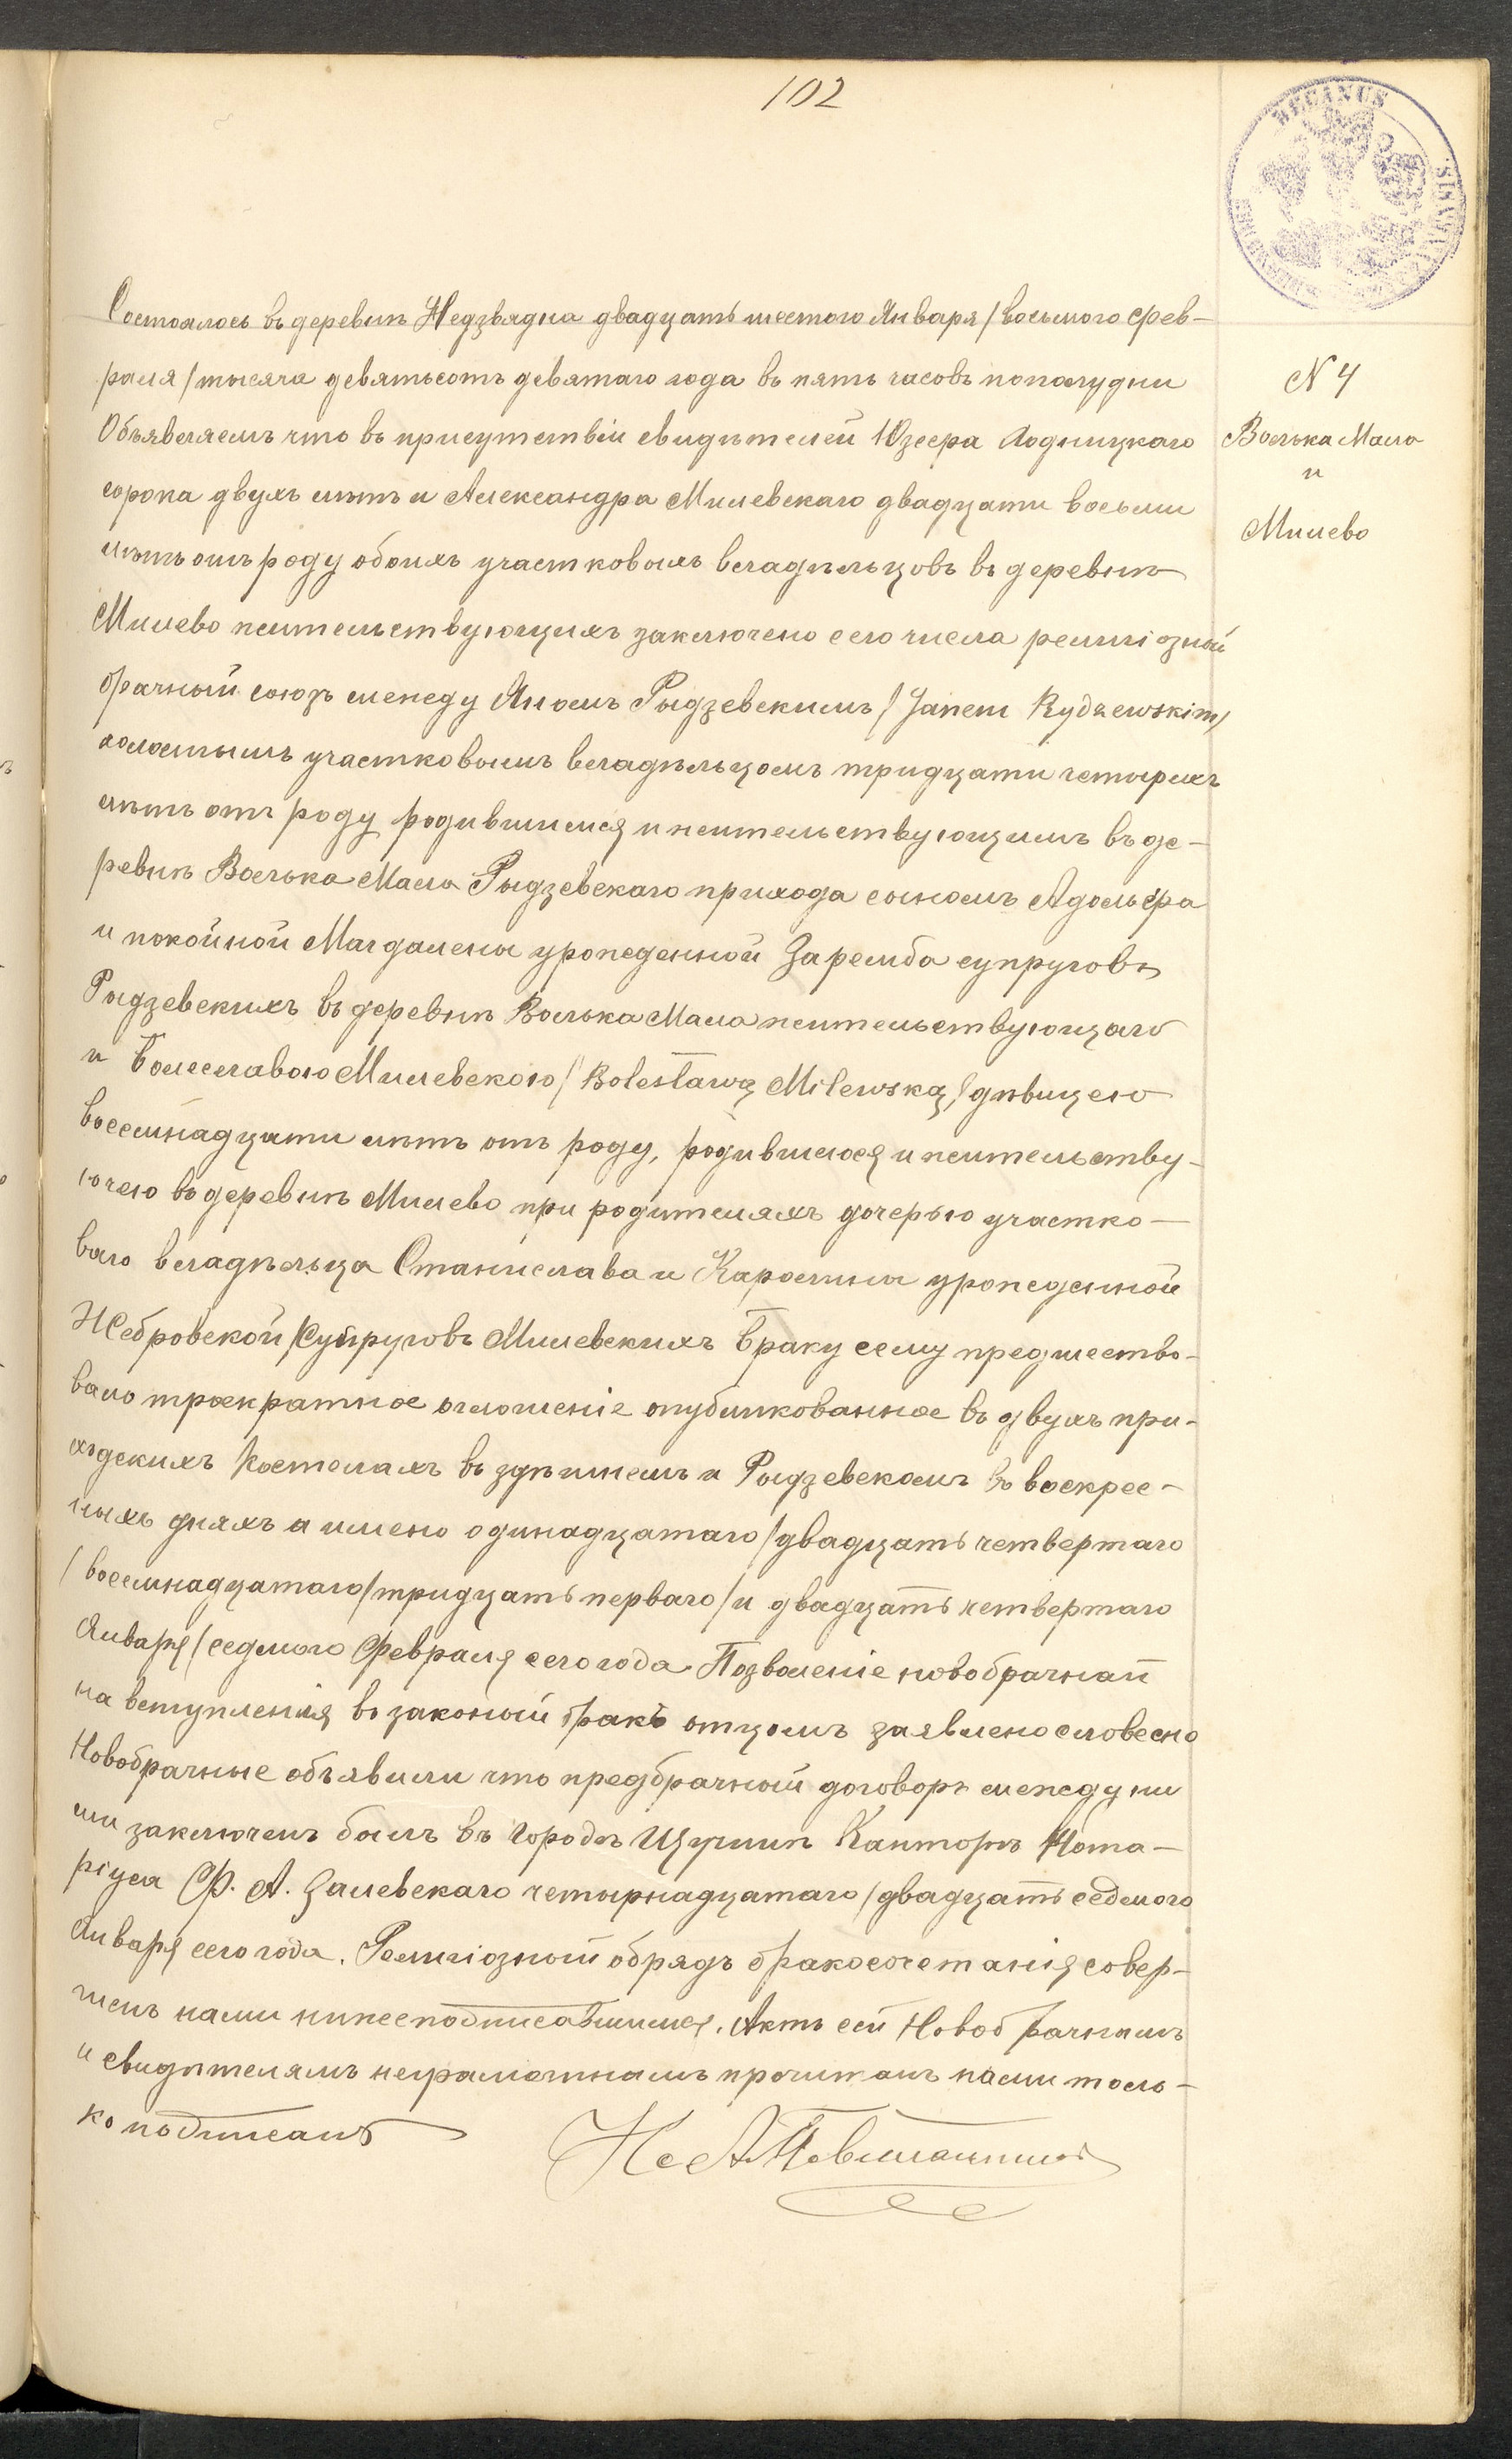 102
DECANUS
N 4
Волька Мала
и
Милево
Состоялось въ деревнѣ Недзвядна двадцать шестого Января / восьмого Фев-
раля / тысяча девятьсотъ девятаго года въ пять часовъ пополудни
Объявляемъ что въ присутствіи свидѣтелей Юзефа Лодницкаго
сорока двухъ лѣтъ и Александра Милевскаго двадцати восьми
лѣтъ отъ роду обоихъ участковыхъ владѣльцовъ въ деревнѣ
Милево жительствующихъ заключено сего числа религіозный
брачный союзъ между Яномъ Рыдзевскимъ / Janem Rydzewskim /
холостымъ участковымъ владѣльцомъ тридцати четырехъ
лѣтъ отъ роду родившимся и жительствующимъ въ де-
ревнѣ Волька Мала Рыдзевскаго прихода сыномъ Адольфа
и покойной Магдалены урожденной Заремба супруговъ
Рыдзевскихъ въ деревнѣ Волька Мала жительствующаго
и Болеславою Милевскою / Bolesławą Milewską / дѣвицею
восемнадцати лѣтъ отъ роду, родившеюся и жительству-
ючею въ деревнѣ Милево при родителяхъ дочерью участко-
ваго владѣльца Станислава и Каролины урожденной
Жебровской / Супруговъ Милевскихъ Браку сему предшество-
вало троекратное оглошеніе опубликованное въ двухъ при-
хъдскихъ Костелахъ въ здѣшнемъ и Рыдзевскомъ въ воскрес-
ныхъ дняхъ а имено одинадцатаго / двадцать четвертаго
/ восемнадцатаго / тридцать перваго / и двадцать четвертаго
Января / седмого Февраля сего года Позволеніе новобрачнай
на вступленія въ законый бракъ отцомъ заявлено словесно
Новобрачные объявили что предбрачный договоръ между ни
ми заключенъ былъ въ Городѣ Щучинѣ Канторѣ Нота-
ріуса Ф. А. Залевскаго четырнадцатаго / двадцать седмого
Января сего года. Религіозный обрядъ бракосочетанія совер-
шенъ нами нижеподписавшимся. Актъ сей Новобрачнымъ
и свидѣтелямъ неграмотнымъ прочитанъ нами толь-
ко подписанъ